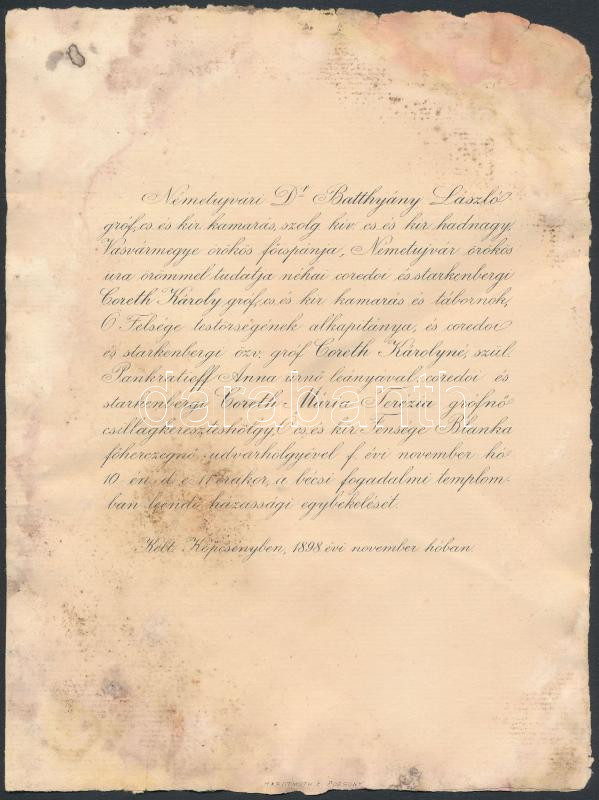 Németujvári Dr. Batthyány László
gróf, cs és kir kamarás, szolg kiv cs és kir hadnagy,
Vasvármegye örökös főispánja, Németujvár örökös
ura örömmel tudatja néhai coredoi és starkenbergi
Coreth Károly gróf, cs és kir kamarás és tábornok,
Ő Felsége testőrségének alkapitánya, és coredoi
és starkenbergi özv. gróf Coreth Károlyné, szül.
Pankratieff Anna úrnő leányával, coredoi és
starkenbergi Coreth Mária Terézia grófnő
csillagkereszteshölgy, cs és kir Fensége Bianka
főherczegnő udvarhölgyével f évi november hó
10 én d e 11 órakor, a bécsi fogadalmi templom-
ban leendő házassági egybekelését.
Kelt Köpcsényben, 1898 évi november hóban.
HARTMUTH E. POZSONY
darabanth